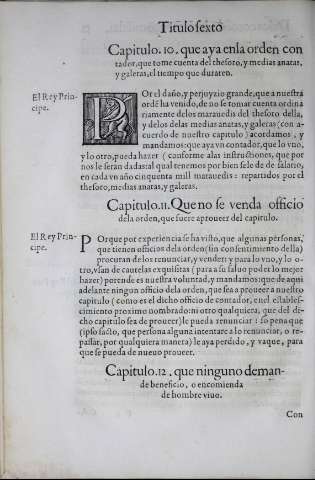 Titulo sexto
Capitulo. 10. que aya enla orden con
tador, que tome cuenta del thesoro, y medias anatas,
y galeras, el tiempo que duraren.
El Rey Prin-
cipe.
POr el daño, y perjuyzio grande, que a nuestra
ordē ha venido, de no se tomar cuenta ordina
riamente delos marauedis del thesoro della,
y delos delas medias anatas, y galeras (con a-
cuerdo de nuestro capitulo) acordamos, y
mandamos: que aya vn contador, que lo vno,
y lo otro, pueda hazer (conforme alas instructiones, que por
nos le serān dadas: al qual tenemos por bien se le de de salario,
en cada vn año cinquenta mill marauedis: repartidos por el
thesoro, medias anatas, y galeras.
Capitulo. 11. Que no se venda officio
dela orden, que fuere aproueer del capitulo.
El Rey Prin-
cipe.
POrque por experiencia se ha visto, que algunas personas,
que tienen officios dela orden (sin consentimiento della)
procuran delos renunciar, y vender: y para lo vno, y lo o-
tro, vsan de cautelas exquisitas (para a su saluo poder lo mejor
hazer) porende es nuestra voluntad, y mandamos: que de aqui
adelante ningun officio dela orden, que sea a proueer a nuestro
capitulo (como es el dicho officio de contador, enel establesci-
miento proximo nombrado: ni otro qualquiera, que del di-
cho capitulo sea de proueer) le pueda renunciar: so pena que
(ipso facto, que persona alguna intentare a lo renunciar, o re-
passar, por qualquiera manera) le aya perdido, y vaque, para
que se pueda de nueuo proueer.
Capitulo. 12. que ninguno deman-
de beneficio, o encomienda
de hombre viuo.
Con